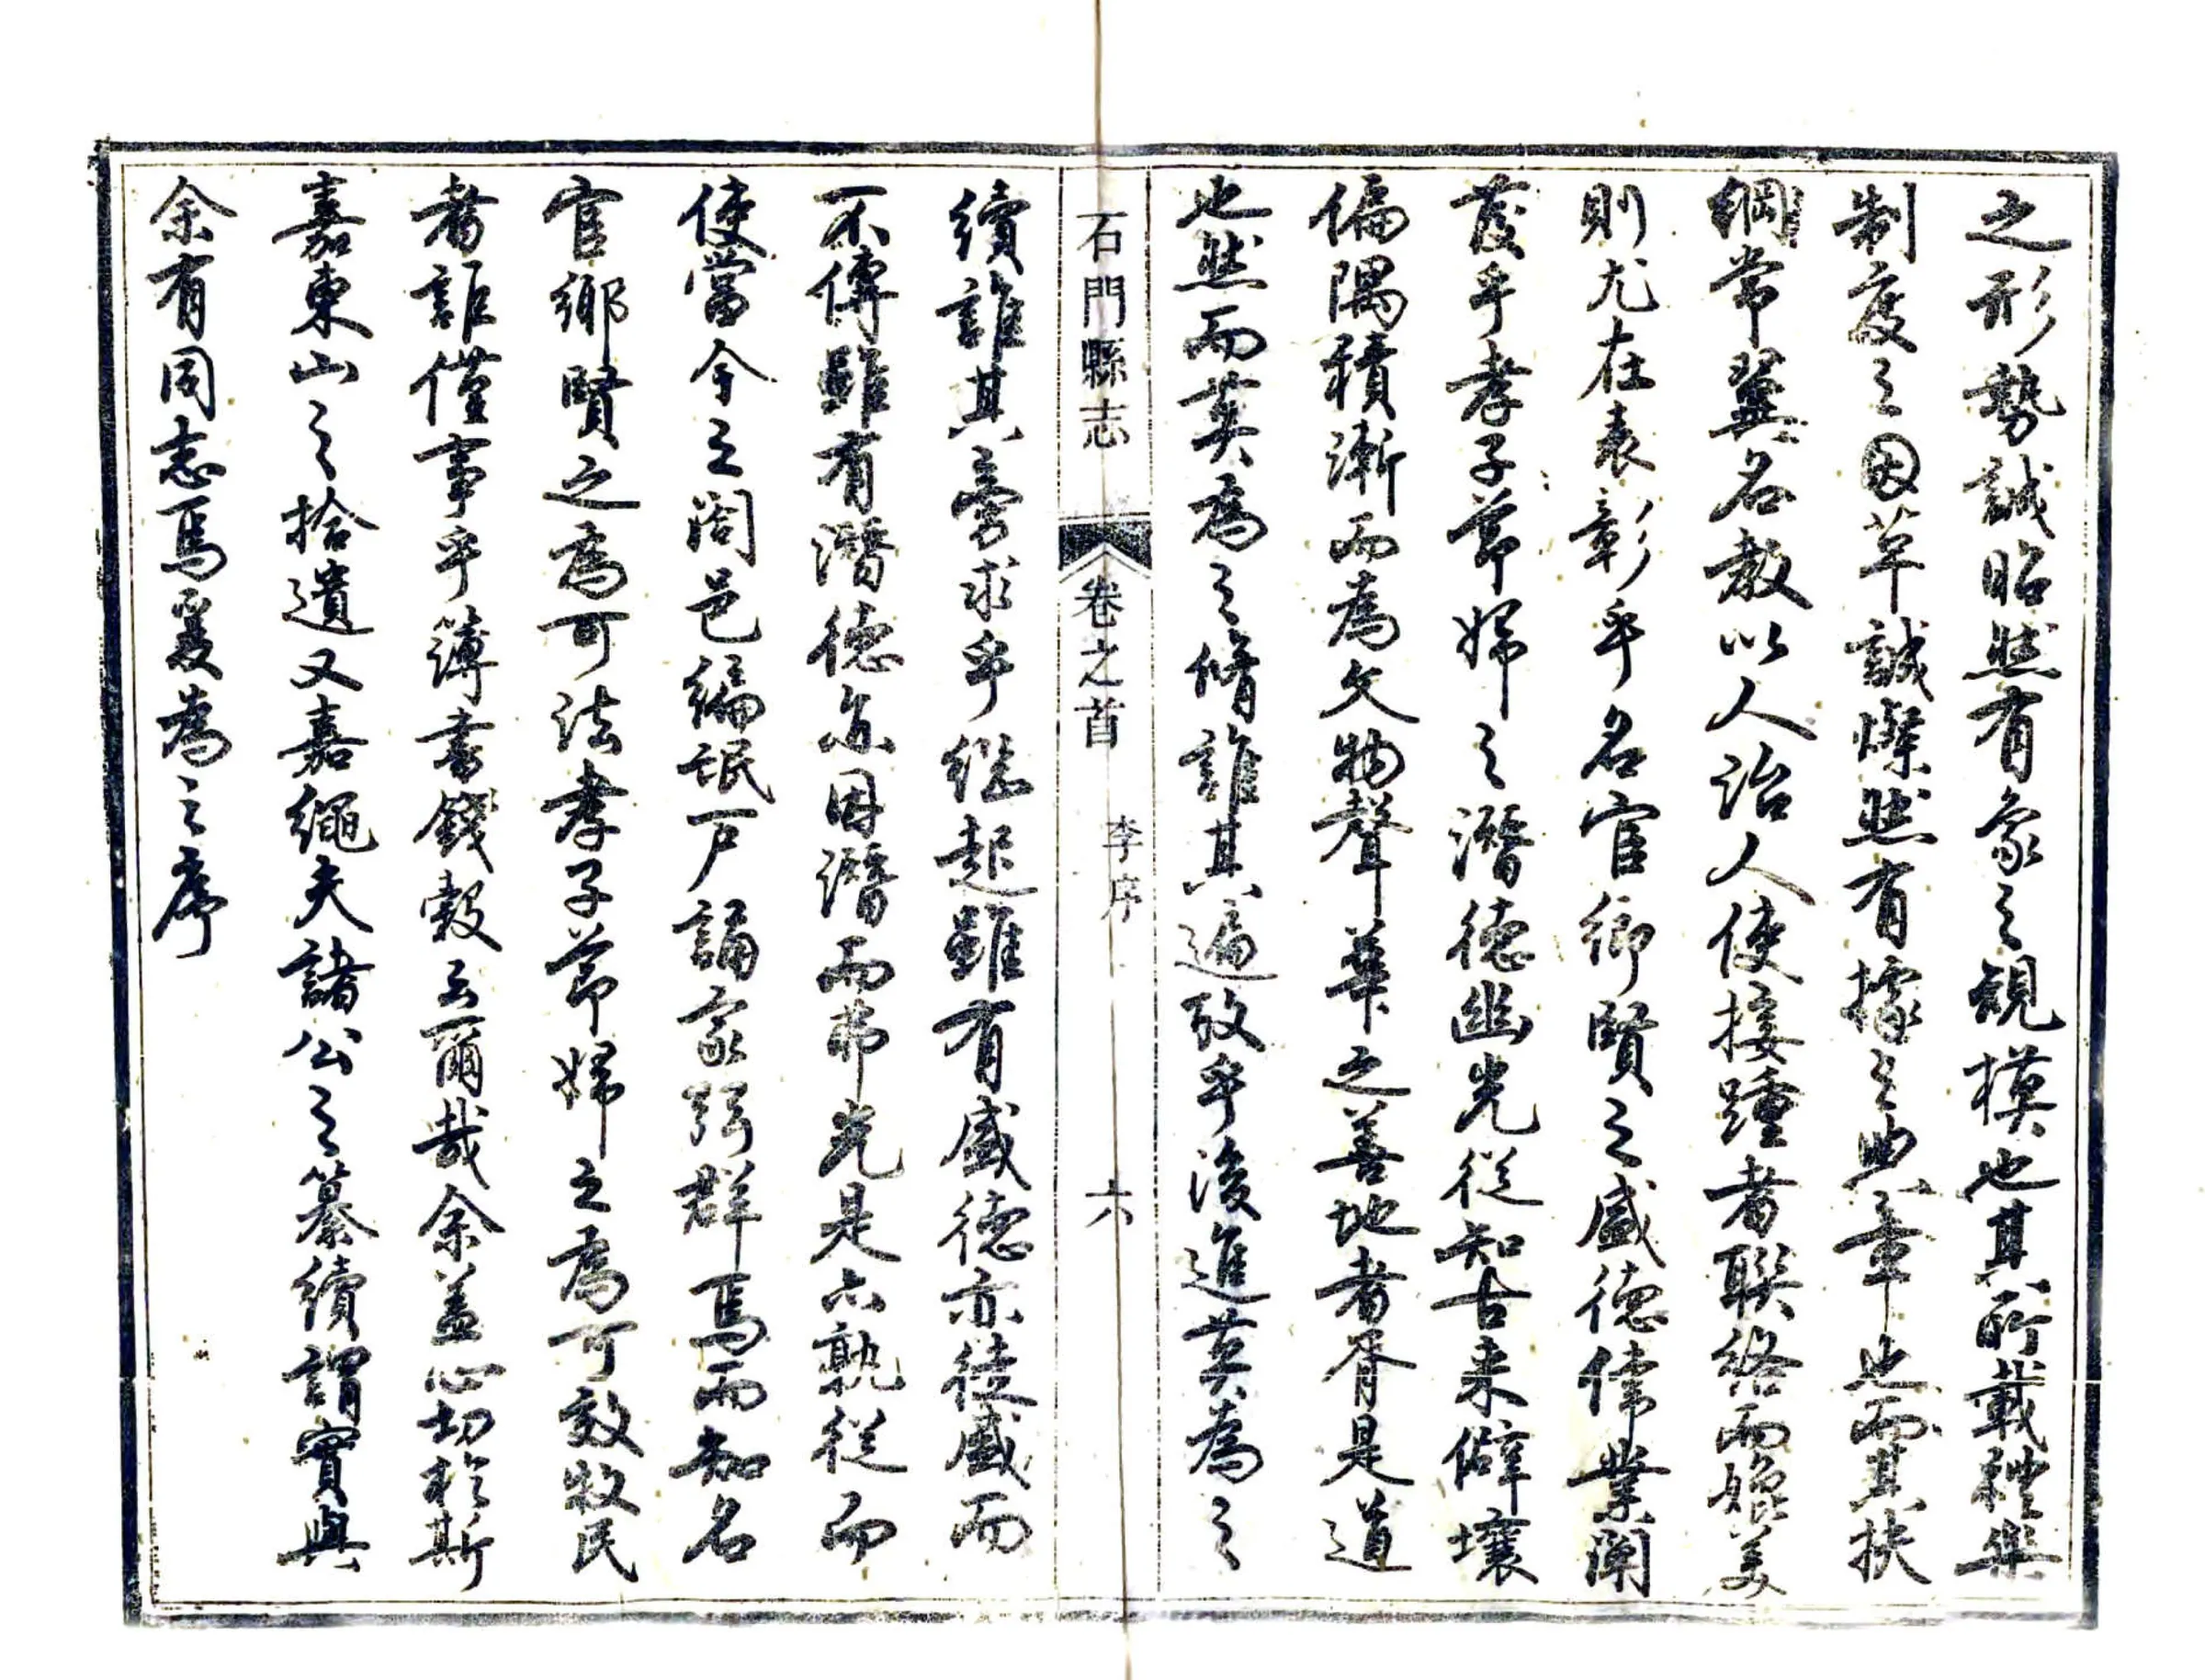 之形勢誠昭然有象之規模也其所載禮樂
制度之因革誠燦然有據之典章也而其扶
綱常翼名教以人治人使接踵者聯絡而媲美
則尤在表彰乎名宦鄉賢之盛德偉業闡
發乎孝子節婦之潛德幽光從知古来僻壤
偏隅積漸而為文物聲華之善地者胥是道
也然而莫為之脩誰其遍攷乎後進莫為之
石門縣志 卷之首 李序 六
續誰其旁求乎继起雖有盛德亦徒盛而
不傳雖有潛德亦因潛而弗光是六孰從而
使當今之闔邑編氓戶誦家弦群焉而知名
宦鄉賢之為可法孝子節婦之為可效牧民
者詎僅事乎簿書錢穀云爾哉余盖心切於斯
嘉東山之拾遺又嘉繩夫諸公之纂續謂實與
余有同志焉爰為之序